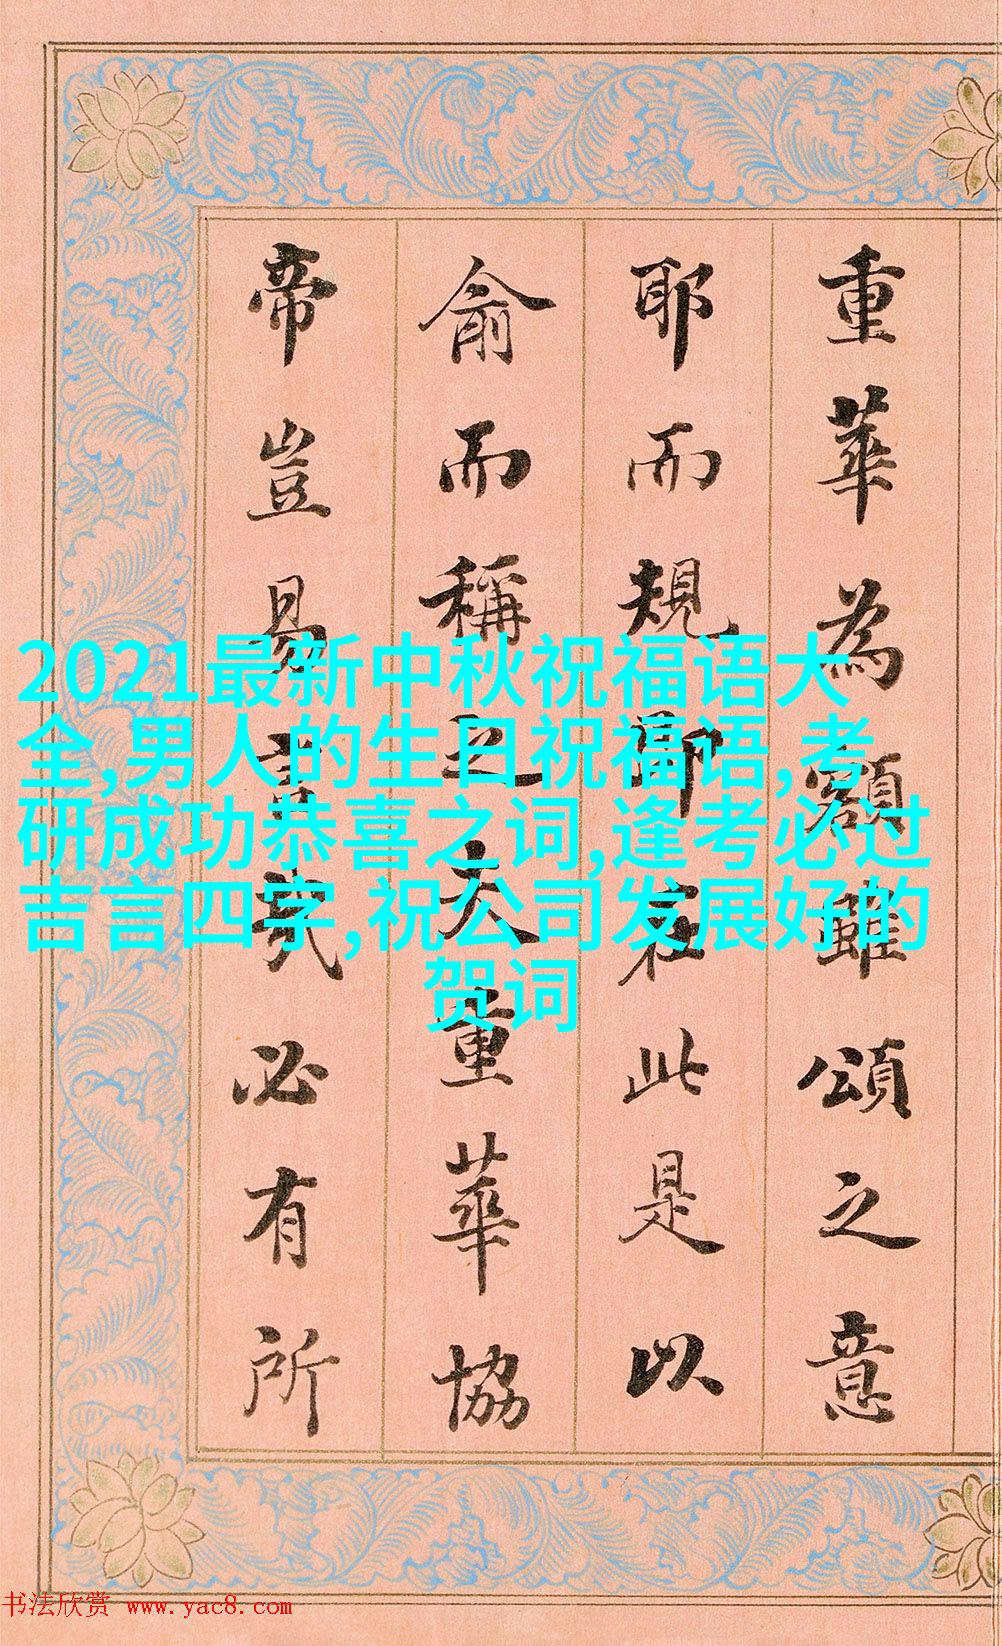 重華為額雖頌之意
耶而規即在此是以
俞而稱之夫重華協
帝豈易言哉必有所
2021最新中秋祝福语大
全,男人的生日祝福语,考
研成功恭喜之词,逢考必过
吉言四字,祝公司发展好的
贺词
书法欣赏 www.yac8.com